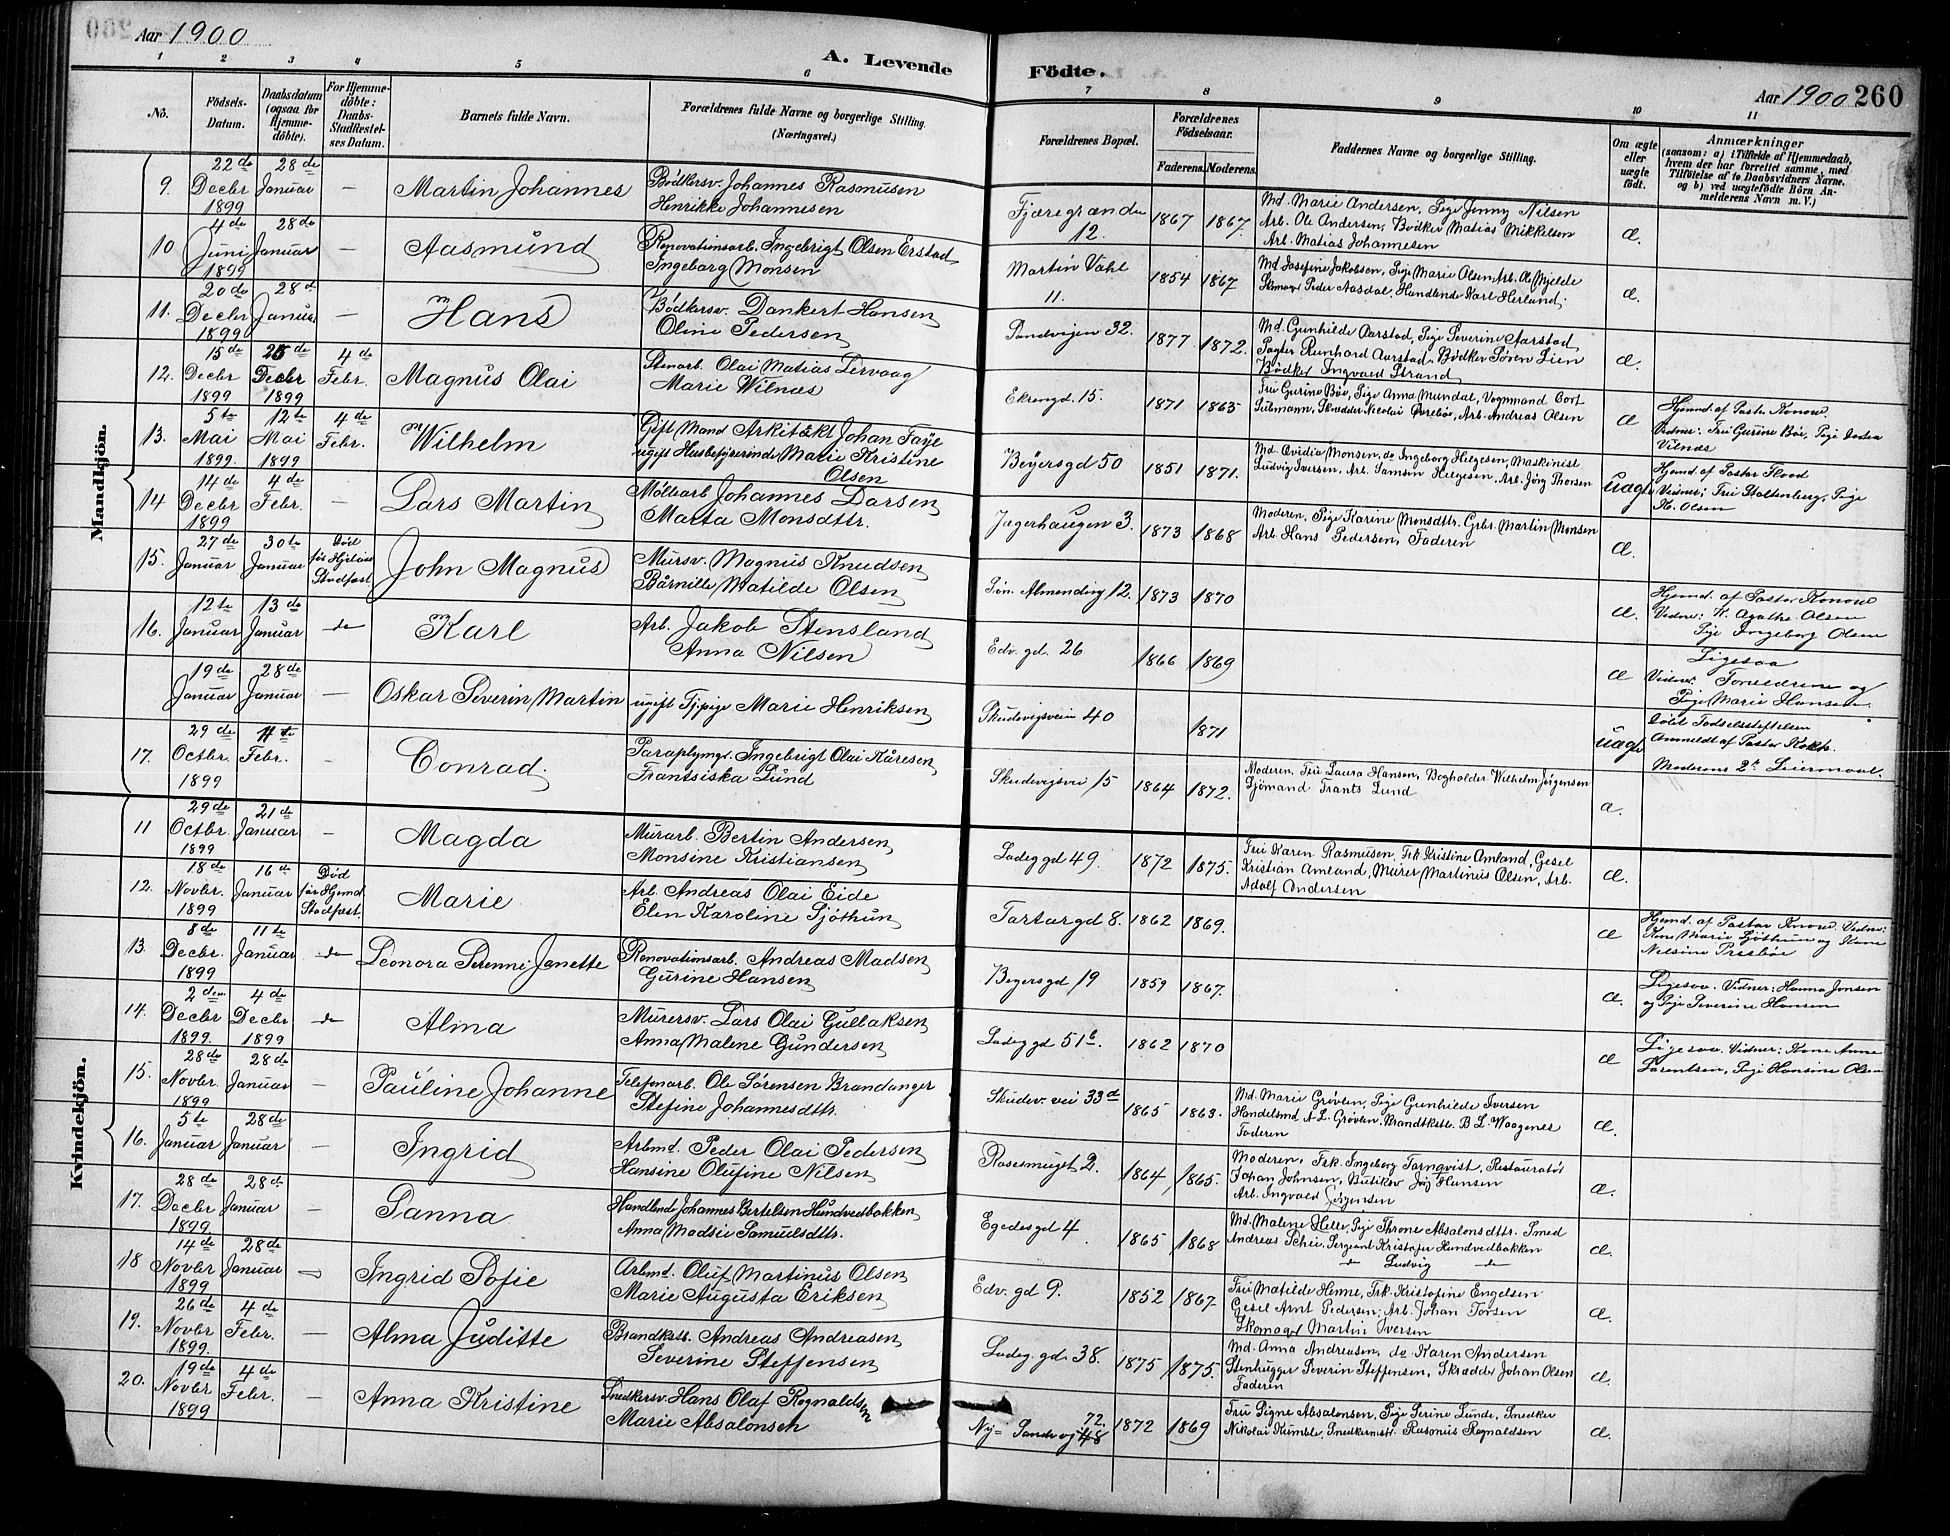 Aar 1900
A. Levende
Fødte.
Aar 1900 260
1 2 3 4 5 6 7 8 9 10 11
No.
Fødsels-Datum.
Daabsdatum (ogsaa for Hjemmedøbte).
For Hjemmedøbte: Daabs-Stadfæstelses Datum.
Barnets fulde Navn.
Forældrenes fulde Navne og borgerlige Stilling. (Næringsvei.)
Forældrenes Bopæl.
Forældrenes Fødselsaar.
Faderens. Moderens.
Faddernes Navne og borgerlige Stilling.
Om ægte eller uægte født.
Anmærkninger (saasom: a) i Tilfælde af Hjemmedaab, hvem der har forrettet samme, med Tilføielse af to Daabsvidners Navne, og b) ved uægtefødte Børn Anmelderens Navn m. V.)
Mandkjøn.
9. 22de Decbr 1899 28de Januar — Martin Johannes
Bødkersv. Johannes Rasmusen
Henrikke Johannesen
Fjæregranden 12. 1867 1867.
Md. Marie Andersen, Pige Jenny Nilsen
Arb. Ole Andersen, Bødker Matias Mikkelsen
Arb. Matias Johannesen
æ.
10 4de Juni 1899 28de Januar — Aasmund
Renovationsarb. Ingebrigt Olsen Erstad
Ingeborg Monsen
Martin Vahl 11. 1854 1867
Md Josefine Jakobsen, Pige Marie Olsen, Arb. Ole Mjelde
Skomager Peder Aasdal, Handlende Karl Herland.
æ.
11. 20de Decbr 1899 28de Januar — Hans
Bødkersv. Dankert Hansen
Oline Pedersen
Sandvigen 32. 1877 1872.
Md. Gunhilde Aarstad, Pige Severine Aarstad
Reinhard Aarstad, Bødker Søren Lien
Bødker Ingvald Strand
æ.
12. 15de Decbr 1899 25de Decbr 1899 4de Febr. Magnus Olai
Stenarb. Olai Matias Lervaag
Marie Wilnæs
Ekrengd. 15. 1871 1865
Fru Gurine Bøe, Pige Anna Mundal, Vognmand Cort
Skredder Nicolai Øvrebøe, Arb. Andreas Olsen
æ
Hjemd. af Pastor Konow.
Vidner: Fru Gurine Bøe, Pige
Vilnæs
13. 5te Mai 1899. 12te Mai 1899 4de Febr. Wilhelm
Gift Mand Arkitekt Johan Faye
ugift Husbestyrerinde Marie Kristine
Olsen
Beyersgd 50 1851 1871.
Md. Ovidia Monsen, do Ingeborg Helgesen, Maskinist
Ludvig Iversen, Arb. Samson Helgesen, Arb. Jørg Thorsen
uægte
Hjemd. af Pastor Flood
Vidner: Fru Stoltenberg, Pige
K. Olsen
14 14de Decbr 1899 4de Febr. — Lars Martin
Møllearb Johannes Larsen
Marta Monsdttr.
Jægerhaugen 3. 1873 1868
Moderen, Pige Karine Monsdttr. Grbr. Martin Monsen
Arb. Hans Pedersen, Faderen
æ.
15. 27de Januar 30te Januar Død før Stadfæst. John Magnus
Mursv. Magnus Knudsen
Bårnille Matilde Olsen
Søn. Almending 12. 1873 1870
æ.
Hjemd. af Pastor Konow
Vidner: K. Agathe Olsen
Pige Ingeborg Olsen
16. 12te Januar 13de Januar do Karl
Arb. Jakob Stensland
Anna Nilsen
Edv. gd. 26 1866 1869
æ
Ligesaa
Vidner: Forældrene og
Pige Marie Hansen
19de Januar 28de Januar — Oskar Severin Martin
ugift Tjpige Marie Henriksen
Skudevigsveien 40 1871
uægte
Døbt Fødselsstiftelsen
Anmeldt af Pastor Koht.
Moderens 2det Leiermaal.
17. 29de Octbr. 1899 Febr. Conrad.
Paraplymgr. Ingebrigt Olai Kåresen
Frantsiska Lund
Skudevigsvei 15 1864 1872.
Moderen, Fru Laura Hansen, Bogholder Wilhelm Jørgensen
Sjømand Frants Lund
æ.
Kvindekjøn.
11 29de Octbr. 1899 21de Januar — Magda
Murarb. Bertin Andersen
Monsine Kristiansen
Ladeg gd 49. 1872 1875.
Fru Karen Rasmusen, Frk Kristine Amland, Gesel
Kristian Amland, Murer Martinus Olsen, Arb.
Adolf Andersen
æ.
12. 18de Novbr. 1899 16de Januar Død før Hjemd Stadfæst. Marie
Arb. Andreas Olai Eide
Elen Karoline Sjøthun
Tartargd 8. 1862 1869.
æ
Hjemd. af Pastor Konow Vidner:
Kone Marie Sjøthun og Kone
Nilsine Presbøe
13. 8de Decbr. 1899 11te Januar do Leonora Serenne Janette
Renovationsarb. Andreas Madsen
Gurine Hansen
Beyersgd 19 1859 1867.
æ.
Ligesaa. Vidner: Hanna Jonsen
og Pige Severine Hansen
14. 2den Decbr 1899. 4de Decbr 1899 do Alma
Murersv. Lars Olai Gullaksen
Anna Malene Gundersen
Ladeg gd 51b. 1862 1870
æ
Ligesaa. Vidner: Kone Anne
Larentsen, Pige Hansine Olsen
15. 28de Novbr. 1899 28de Januar — Pauline Johanne
Telefonarb. Ole Sørensen Brandanger
Stefine Johannesdttr.
Skudev. vei 33d 1865 1863.
Md. Marie Grøven, Pige Gunhilde Iversen
Handelsmd A L. Grøven. Brandtkstb. B L. Waagenes
Faderen
æ.
16. 5te Januar 28de Januar — Ingrid
Arbmd. Peder Olai Pedersen
Hansine Olufine Nilsen
Rosesmuget 2. 1864 1865.
Moderen, Frk. Ingeborg Tornqvist, Restauratør
Johan Johnsen, Butikev Hansen
Arb. Ingvald Jørgensen
æ.
17. 28de Decbr 1899 28de Januar — Sanna
Handlende Johannes Bertelsen Hundvedbakken
Anna Madsie Samuelsdttr.
Egedesgd 4. 1865 1868
Md. Malene Helle, Pige Throne Absalonsdttr. Smed
Andreas Schei, Sergeant Kristofer Hundvedbakken
do Ludvig do
æ.
18 14de Novbr 1899 28de Januar — Ingrid Sofie
Arbmd. Oluf Martinus Olsen
Marie Augusta Eriksen
Edv. gd 9. 1852 1867
Fru Matilde Henne, Frk. Kristofine Engelsen
Gesel Arnt Pedersen, Arb. Johan Torsen
Skomager Martin Iversen
æ.
19. 26de Novbr 1899. 4de Febr. — Alma Juditte
Brandkstb. Andreas Andreasen
Severine Steffensen
Ladeg. gd. 38. 1875 1875.
Md. Anna Andreasen, do Karen Andersen
Stenhugger Severin Steffensen, Skrædder Johan Olsen
Faderen
æ.
20. 19de Novbr 1899 4de Febr. — Anna Kristine
Snedkersv. Hans Olaf Rognaldsen
Marie Absalonsen
Ny- Sandvg 72. 48 1872 1869
Fru Signe Absalonsen, Pige Serine Lunde, Snedker
Nikolai Kumble, Snedkermstr. Rasmus Rognaldsen
æ.